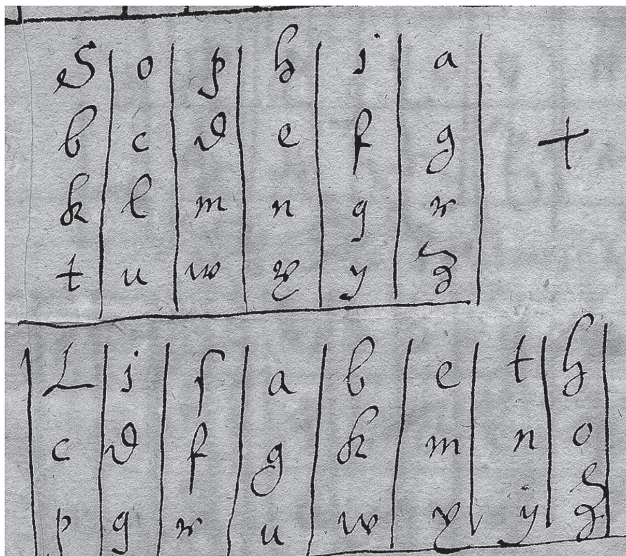 S o p h i a
b c d e f g +
k l m n q r
t u w x y z
L i ſ a b e t h
c d f g k m n o
p q r u w x y z